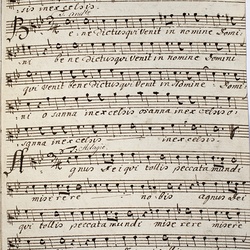 sis in excelsis.
Be,ne,dictus qui venit in nomine Domi
ni benedictus qui venit in nomine Domini
qui venit benedictus qui venit in nomine Domi
ni osanna in excelsis osanna in excelsis,
osanna in excelsis in excelsis.
Adagio.
Agnus Dei qui tollis peccata mundi
miserere no bis agnus Dei
qui tollis peccata mundi miserere miserere